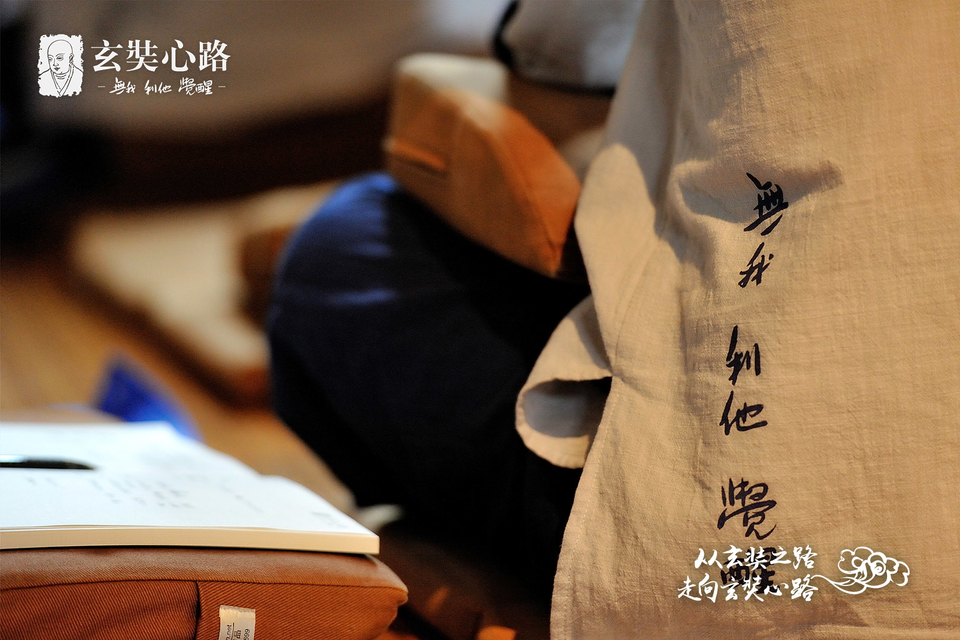 玄奘心路
無我 利他 覺醒
無我 利他 覺醒
从玄奘之路
走向玄奘心路